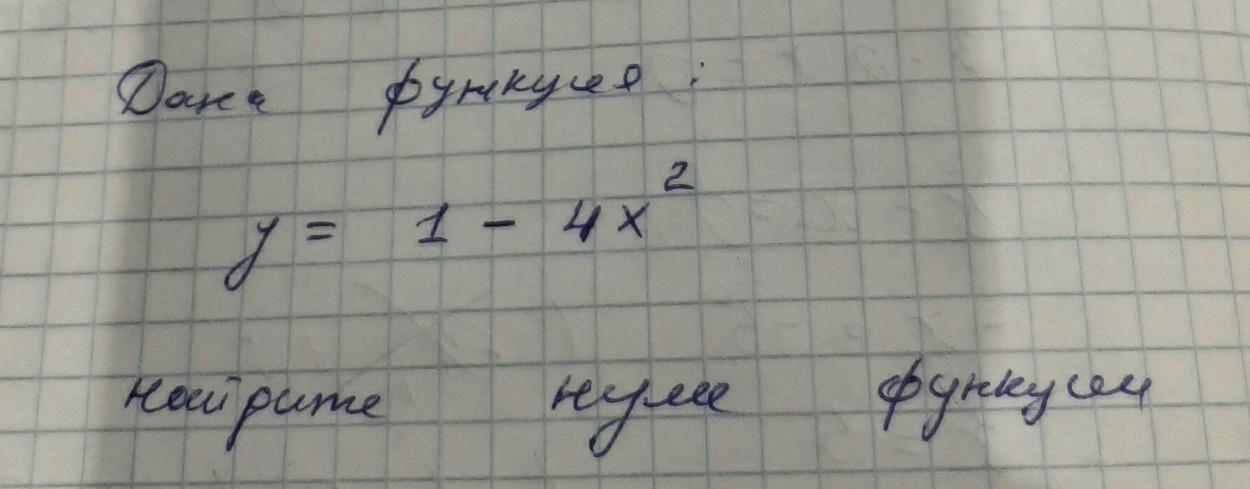 Дана функция :
y = 1 - 4x²
найдите нули функции